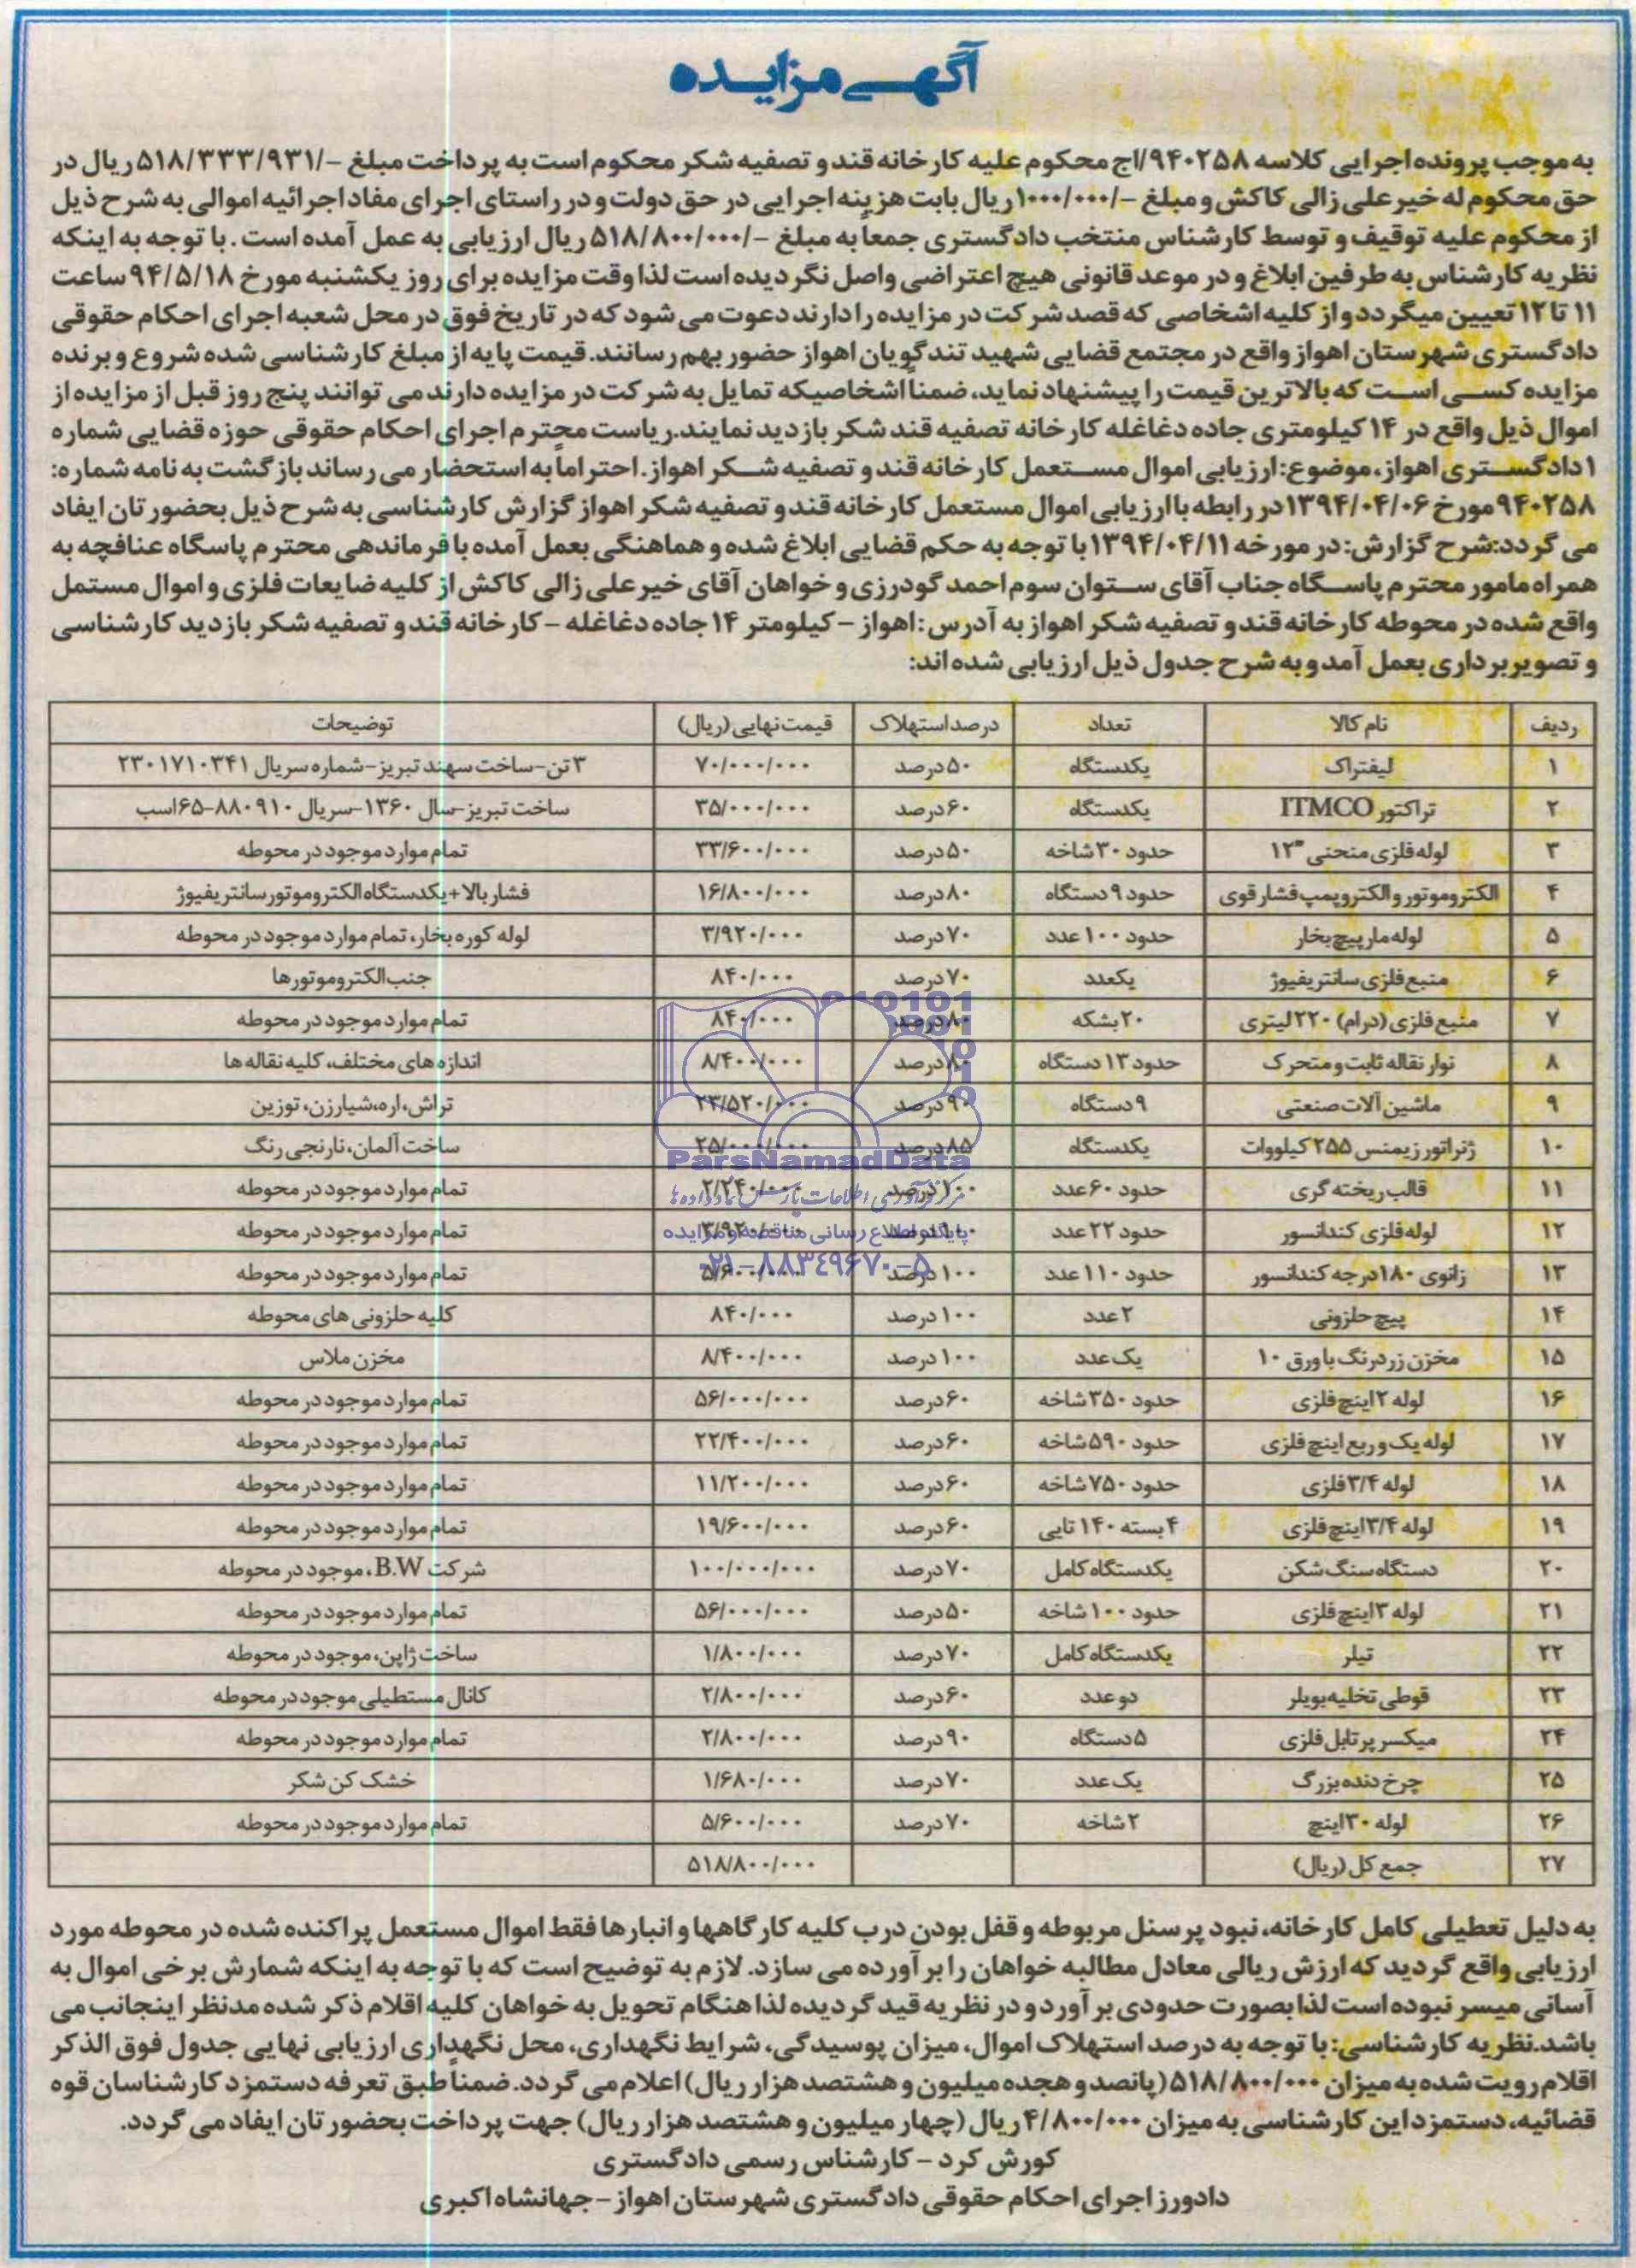 آگهی مزایده
به موجب پرونده اجرایی کلاسه ۹۴۰۲۵۸/اج محکوم علیه کارخانه قند و تصفیه شکر محکوم است به پرداخت مبلغ -/۵۱۸/۳۳۳/۹۳۱ ریال در
حق محکوم له خیرعلی زالی کاکش و مبلغ -/۱۰۰۰/۰۰۰ ریال بابت هزینه اجرایی در حق دولت و در راستای اجرای مفاد اجرائیه اموالی به شرح ذیل
از محکوم علیه توقیف و توسط کارشناس منتخب دادگستری جمعاً به مبلغ -/۵۱۸/۸۰۰/۰۰۰ ریال ارزیابی به عمل آمده است. با توجه به اینکه
نظریه کارشناس به طرفین ابلاغ و در موعد قانونی هیچ اعتراضی واصل نگردیده است لذا وقت مزایده برای روز یکشنبه مورخ ۹۴/۵/۱۸ ساعت
۱۱ تا ۱۲ تعیین میگردد و از کلیه اشخاصی که قصد شرکت در مزایده را دارند دعوت می شود که در تاریخ فوق در محل شعبه اجرای احکام حقوقی
دادگستری شهرستان اهواز واقع در مجتمع قضایی شهید تندگویان اهواز حضور بهم رسانند. قیمت پایه از مبلغ کارشناسی شده شروع و برنده
مزایده کسی است که بالاترین قیمت را پیشنهاد نماید، ضمناً اشخاصیکه تمایل به شرکت در مزایده دارند می توانند پنج روز قبل از مزایده از
اموال ذیل واقع در ۱۴ کیلومتری جاده دغاغله کارخانه تصفیه قند شکر بازدید نمایند. ریاست محترم اجرای احکام حقوقی حوزه قضایی شماره
۱ دادگستری اهواز، موضوع: ارزیابی اموال مستعمل کارخانه قند و تصفیه شکر اهواز. احتراماً به استحضار می رساند بازگشت به نامه شماره:
۹۴۰۲۵۸ مورخ ۱۳۹۴/۰۴/۰۶ در رابطه با ارزیابی اموال مستعمل کارخانه قند و تصفیه شکر اهواز گزارش کارشناسی به شرح ذیل بحضورتان ایفاد
می گردد: شرح گزارش: در مورخه ۱۳۹۴/۰۴/۱۱ با توجه به حکم قضایی ابلاغ شده و هماهنگی بعمل آمده با فرماندهی محترم پاسگاه عنافچه به
همراه مامور محترم پاسگاه جناب آقای ستوان سوم احمد گودرزی و خواهان آقای خیرعلی زالی کاکش از کلیه ضایعات فلزی و اموال مستمل
واقع شده در محوطه کارخانه قند و تصفیه شکر اهواز به آدرس: اهواز - کیلومتر ۱۴ جاده دغاغله - کارخانه قند و تصفیه شکر بازدید کارشناسی
و تصویربرداری بعمل آمد و به شرح جدول ذیل ارزیابی شده اند:
ردیف نام کالا تعداد درصد استهلاک قیمت نهایی (ریال) توضیحات
۱ لیفتراک یکدستگاه ۵۰ درصد ۷۰/۰۰۰/۰۰۰ ۳ تن-ساخت سهند تبریز-شماره سریال ۲۳۰۱۷۱۰۳۴۱
۲ تراکتور ITMCO یکدستگاه ۶۰ درصد ۳۵/۰۰۰/۰۰۰ ساخت تبریز-سال ۱۳۶۰-سریال ۸۸۰۹۱۰-۶۵اسب
۳ لوله فلزی منحنی "۱۲ حدود ۳۰ شاخه ۵۰ درصد ۳۳/۶۰۰/۰۰۰ تمام موارد موجود در محوطه
۴ الکتروموتور و الکتروپمپ فشار قوی حدود ۹ دستگاه ۸۰ درصد ۱۶/۸۰۰/۰۰۰ فشار بالا + یکدستگاه الکتروموتور سانتریفیوژ
۵ لوله مارپیچ بخار حدود ۱۰۰ عدد ۷۰ درصد ۳/۹۲۰/۰۰۰ لوله کوره بخار، تمام موارد موجود در محوطه
۶ منبع فلزی سانتریفیوژ یکعدد ۷۰ درصد ۸۴۰/۰۰۰ جنب الکتروموتورها
۷ منبع فلزی (درام) ۲۲۰ لیتری ۲۰ بشکه ۸۰ درصد ۸۴۰/۰۰۰ تمام موارد موجود در محوطه
۸ نوار نقاله ثابت و متحرک حدود ۱۳ دستگاه ۸۰ درصد ۸/۴۰۰/۰۰۰ اندازه های مختلف، کلیه نقاله ها
۹ ماشین آلات صنعتی ۹ دستگاه ۹۰ درصد ۲۳/۵۲۰/۰۰۰ تراش، اره، شیارزن، توزین
۱۰ ژنراتور زیمنس ۲۵۵ کیلووات یکدستگاه ۸۵ درصد ۲۵/۰۰۰/۰۰۰ ساخت آلمان، نارنجی رنگ
۱۱ قالب ریخته گری حدود ۶۰ عدد ۱۰۰ درصد ۲/۲۴۰/۰۰۰ تمام موارد موجود در محوطه
۱۲ لوله فلزی کندانسور حدود ۲۲ عدد ۱۰۰ درصد ۳/۹۲۰/۰۰۰ تمام موارد موجود در محوطه
۱۳ زانوی ۱۸۰ درجه کندانسور حدود ۱۱۰ عدد ۱۰۰ درصد ۵/۶۰۰/۰۰۰ تمام موارد موجود در محوطه
۱۴ پیچ حلزونی ۲ عدد ۱۰۰ درصد ۸۴۰/۰۰۰ کلیه حلزونی های محوطه
۱۵ مخزن زردرنگ با ورق ۱۰ یک عدد ۱۰۰ درصد ۸/۴۰۰/۰۰۰ مخزن ملاس
۱۶ لوله ۲ اینچ فلزی حدود ۳۵۰ شاخه ۶۰ درصد ۵۶/۰۰۰/۰۰۰ تمام موارد موجود در محوطه
۱۷ لوله یک و ربع اینچ فلزی حدود ۵۹۰ شاخه ۶۰ درصد ۲۲/۴۰۰/۰۰۰ تمام موارد موجود در محوطه
۱۸ لوله ۳/۴ فلزی حدود ۷۵۰ شاخه ۶۰ درصد ۱۱/۲۰۰/۰۰۰ تمام موارد موجود در محوطه
۱۹ لوله ۳/۴ اینچ فلزی ۴ بسته ۱۴۰ تایی ۶۰ درصد ۱۹/۶۰۰/۰۰۰ تمام موارد موجود در محوطه
۲۰ دستگاه سنگ شکن یکدستگاه کامل ۷۰ درصد ۱۰۰/۰۰۰/۰۰۰ شرکت B.W، موجود در محوطه
۲۱ لوله ۳ اینچ فلزی حدود ۱۰۰ شاخه ۵۰ درصد ۵۶/۰۰۰/۰۰۰ تمام موارد موجود در محوطه
۲۲ تیلر یکدستگاه کامل ۷۰ درصد ۱/۸۰۰/۰۰۰ ساخت ژاپن، موجود در محوطه
۲۳ قوطی تخلیه بویلر دو عدد ۶۰ درصد ۲/۸۰۰/۰۰۰ کانال مستطیلی موجود در محوطه
۲۴ میکسر پرتابل فلزی ۵ دستگاه ۹۰ درصد ۲/۸۰۰/۰۰۰ تمام موارد موجود در محوطه
۲۵ چرخ دنده بزرگ یک عدد ۷۰ درصد ۱/۶۸۰/۰۰۰ خشک کن شکر
۲۶ لوله ۳۰ اینچ ۲ شاخه ۷۰ درصد ۵/۶۰۰/۰۰۰ تمام موارد موجود در محوطه
۲۷ جمع کل (ریال) ۵۱۸/۸۰۰/۰۰۰
ParsNamadData
مرکز فرآوری اطلاعات پارس نماد داده ها
پایگاه اطلاع رسانی مناقصه و مزایده
۰۲۱-۸۸۳۴۹۶۷۰-۵
به دلیل تعطیلی کامل کارخانه، نبود پرسنل مربوطه و قفل بودن درب کلیه کارگاهها و انبارها فقط اموال مستعمل پراکنده شده در محوطه مورد
ارزیابی واقع گردید که ارزش ریالی معادل مطالبه خواهان را برآورده می سازد. لازم به توضیح است که با توجه به اینکه شمارش برخی اموال به
آسانی میسر نبوده است لذا بصورت حدودی برآورد و در نظریه قید گردیده لذا هنگام تحویل به خواهان کلیه اقلام ذکر شده مدنظر اینجانب می
باشد. نظریه کارشناسی: با توجه به درصد استهلاک اموال، میزان پوسیدگی، شرایط نگهداری، محل نگهداری ارزیابی نهایی جدول فوق الذکر
اقلام رویت شده به میزان ۵۱۸/۸۰۰/۰۰۰ (پانصد و هجده میلیون و هشتصد هزار ریال) اعلام می گردد. ضمناً طبق تعرفه دستمزد کارشناسان قوه
قضائیه، دستمزد این کارشناسی به میزان ۴/۸۰۰/۰۰۰ ریال (چهار میلیون و هشتصد هزار ریال) جهت پرداخت بحضورتان ایفاد می گردد.
کورش کرد - کارشناس رسمی دادگستری
دادورز اجرای احکام حقوقی دادگستری شهرستان اهواز - جهانشاه اکبری